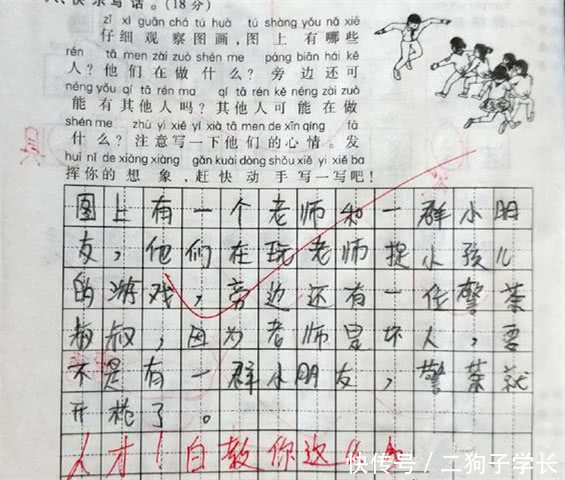 八、快乐写话。(18分)
zǐ xì guān chá tú huà tú shàng yǒu nǎ xiē
仔细观察图画,图上有哪些
rén tā men zài zuò shén me páng biān hái kě
人?他们在做什么?旁边还可
néng yǒu qí tā rén ma qí tā rén kě néng zài zuò
能有其他人吗?其他人可能在做
shén me zhù yì xiě yí xià tā men de xīn qíng fā
什么?注意写一下他们的心情。发
huī nǐ de xiǎng xiàng gǎn kuài dòng shǒu xiě yi xiě ba
挥你的想象,赶快动手写一写吧!
图上有一个老师和一群小朋
友,他们在玩老师捉小孩儿
的游戏,旁边还有一位警茶
叔叔,因为老师是坏人,要
不是有一群小朋友,警茶就
开枪了。
人才!白教你这
快传号/二狗子学长